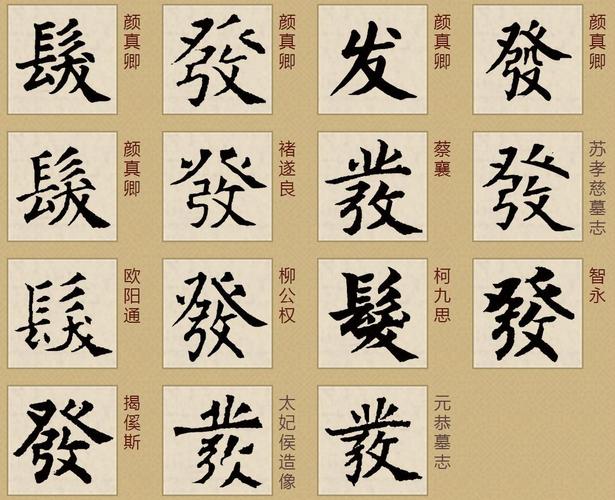 髮 颜真卿
發 颜真卿
发 颜真卿
發 颜真卿
髮 颜真卿
發 褚遂良
發 蔡襄
發 苏孝慈墓志
髮 欧阳通
發 柳公权
髮 柯九思
發 智永
發 揭傒斯
發 太妃侯造像
發 元恭墓志